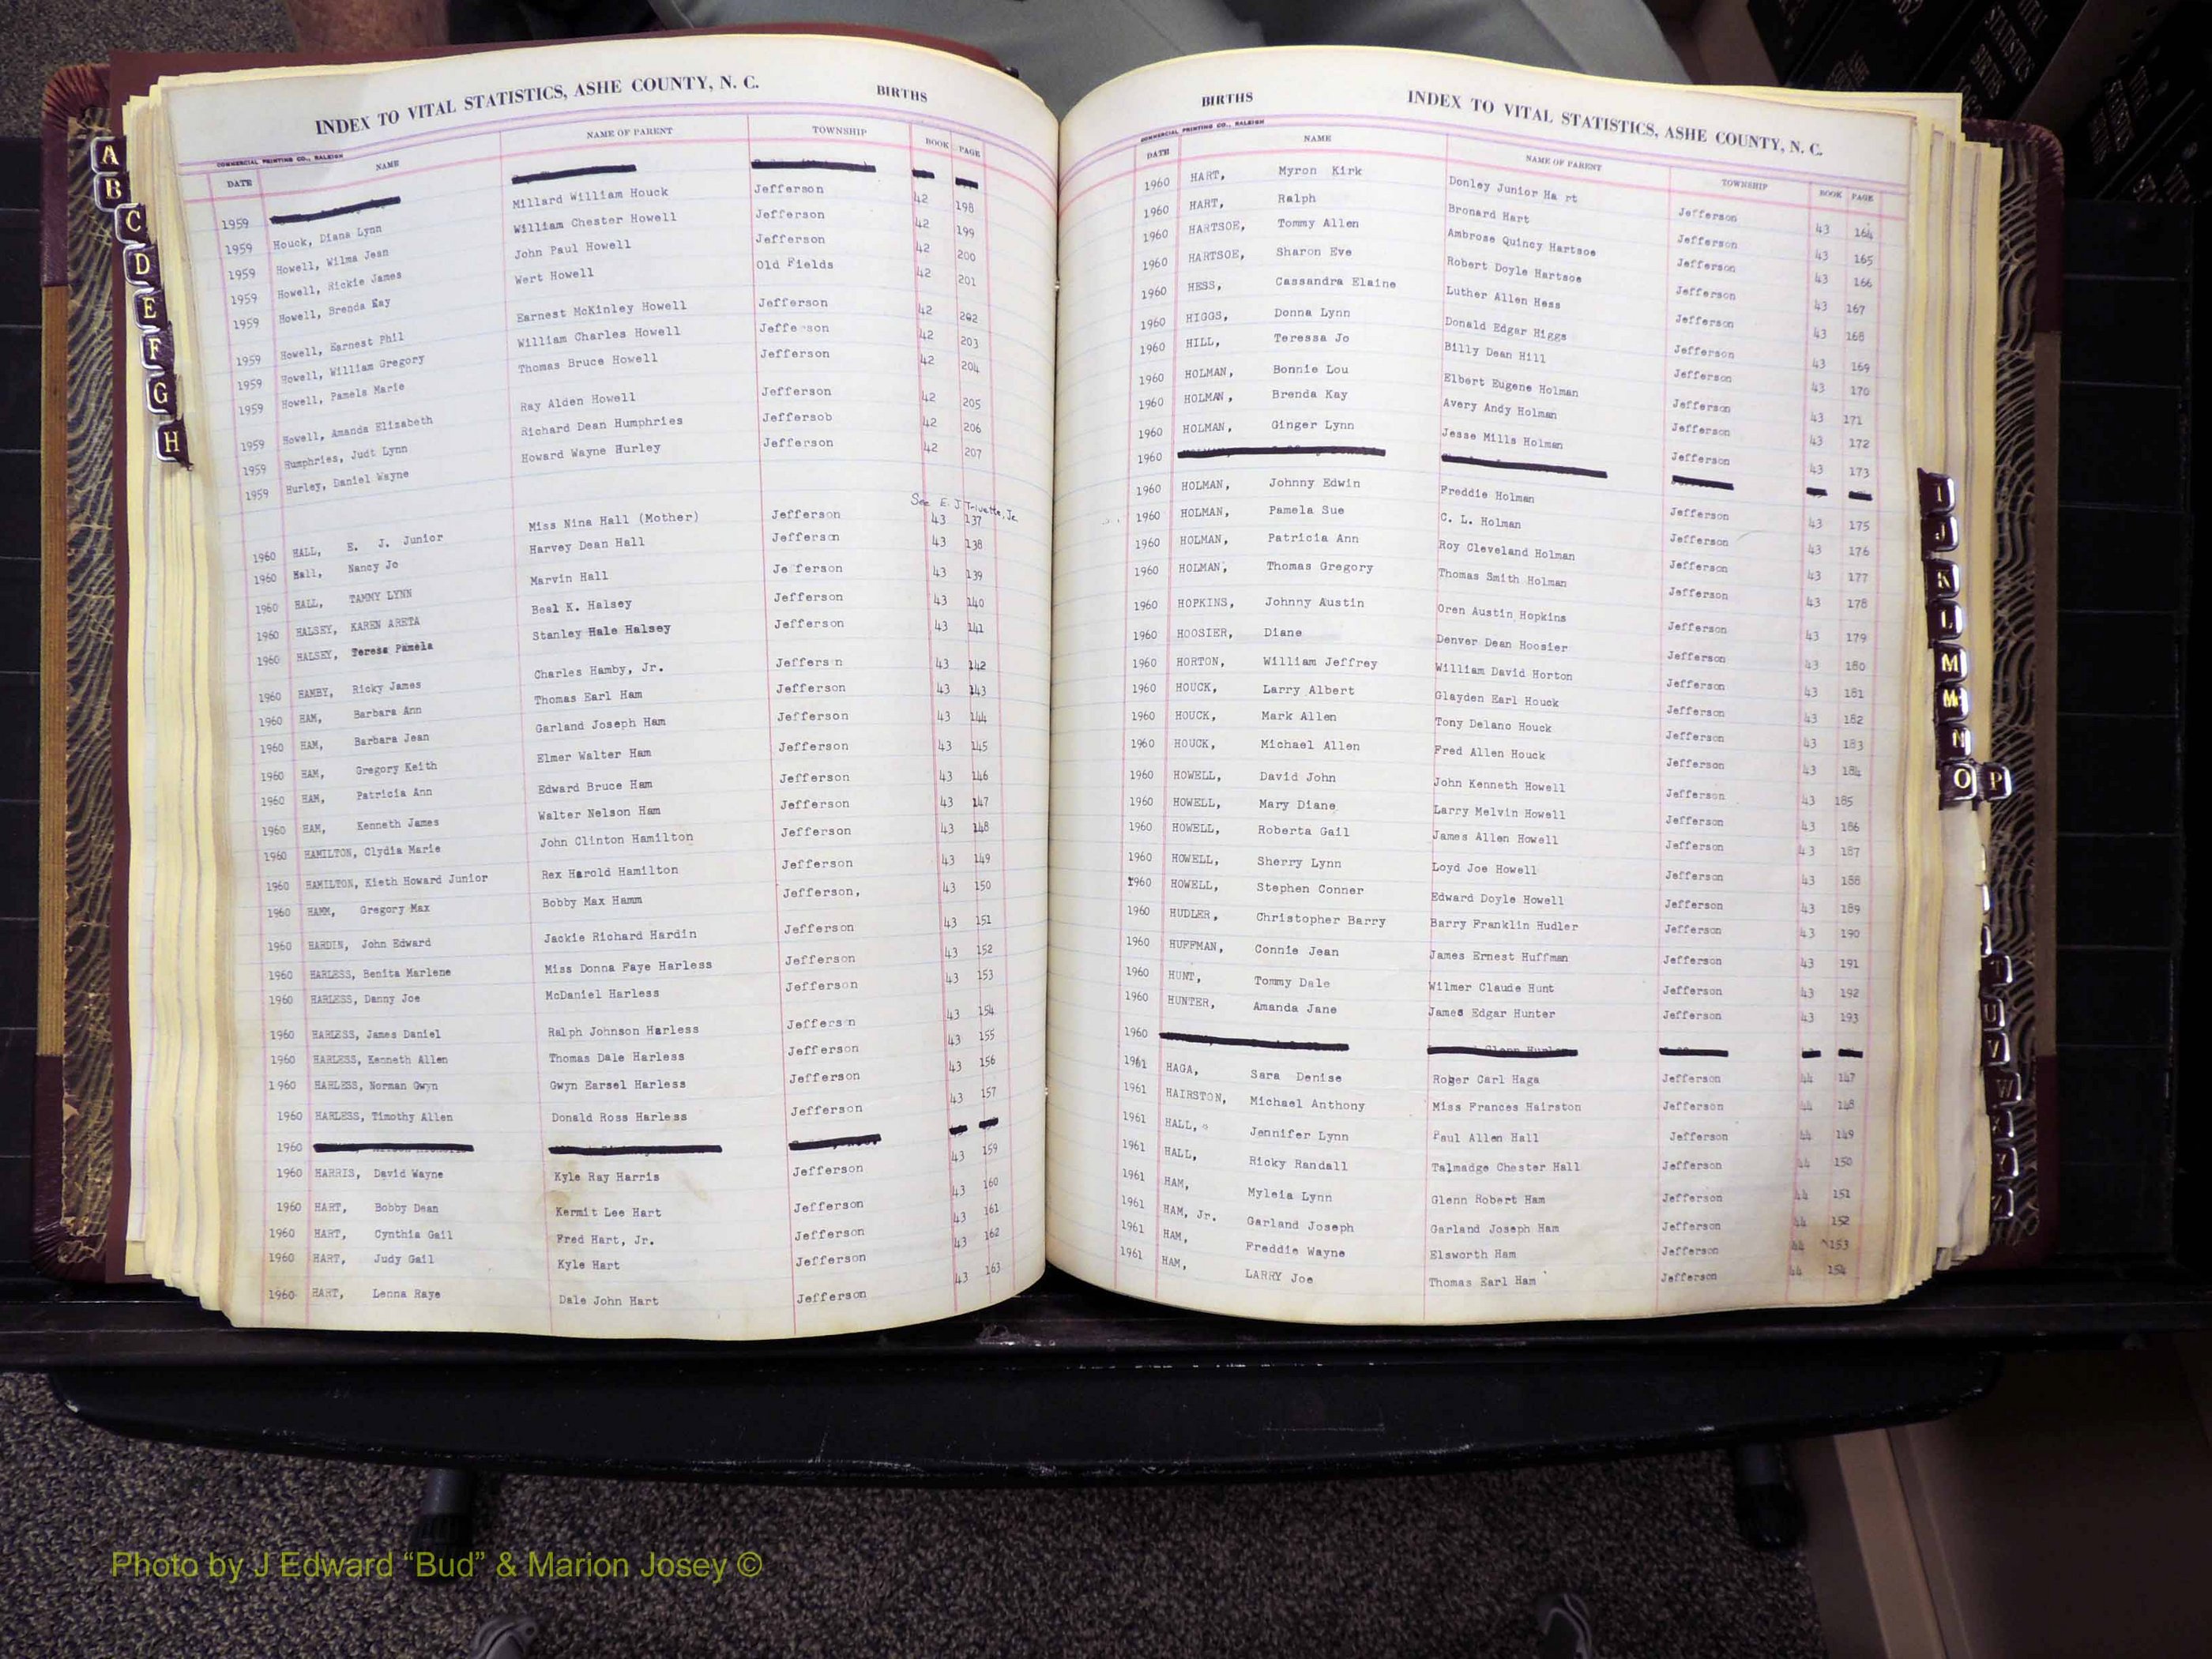 INDEX TO VITAL STATISTICS, ASHE COUNTY, N. C. BIRTHS
COMMERCIAL PRINTING CO., RALEIGH
DATE NAME NAME OF PARENT TOWNSHIP BOOK PAGE
1959
1959 Houck, Diana Lynn Millard William Houck Jefferson 42 198
1959 Howell, Wilma Jean William Chester Howell Jefferson 42 199
1959 Howell, Rickie James John Paul Howell Jefferson 42 200
1959 Howell, Brenda Kay Wert Howell Old Fields 42 201
1959 Howell, Earnest Phil Earnest McKinley Howell Jefferson 42 202
1959 Howell, William Gregory William Charles Howell Jeffe son 42 203
1959 Howell, Pamels Marie Thomas Bruce Howell Jefferson 42 204
1959 Howell, Amanda Elizabeth Ray Alden Howell Jefferson 42 205
1959 Humphries, Judt Lynn Richard Dean Humphries Jeffersob 42 206
1959 Hurley, Daniel Wayne Howard Wayne Hurley Jefferson 42 207
See E. J. Trivette, Jr.
1960 HALL, E. J. Junior Miss Nina Hall (Mother) Jefferson 43 137
1960 Hall, Nancy Jo Harvey Dean Hall Jefferson 43 138
1960 HALL, TAMMY LYNN Marvin Hall Jefferson 43 139
1960 HALSEY, KAREN ARETA Beal K. Halsey Jefferson 43 140
1960 HALSEY, Teresa Pamela Stanley Hale Halsey Jefferson 43 141
1960 HAMBY, Ricky James Charles Hamby, Jr. Jeffers n 43 142
1960 HAM, Barbara Ann Thomas Earl Ham Jefferson 43 143
1960 HAM, Barbara Jean Garland Joseph Ham Jefferson 43 144
1960 HAM, Gregory Keith Elmer Walter Ham Jefferson 43 145
1960 HAM, Patricia Ann Edward Bruce Ham Jefferson 43 146
1960 HAM, Kenneth James Walter Nelson Ham Jefferson 43 147
1960 HAMILTON, Clydia Marie John Clinton Hamilton Jefferson 43 148
1960 HAMILTON, Kieth Howard Junior Rex Harold Hamilton Jefferson 43 149
1960 HAMM, Gregory Max Bobby Max Hamm Jefferson, 43 150
1960 HARDIN, John Edward Jackie Richard Hardin Jefferson 43 151
1960 HARLESS, Benita Marlene Miss Donna Faye Harless Jefferson 43 152
1960 HARLESS, Danny Joe McDaniel Harless Jefferson 43 153
1960 HARLESS, James Daniel Ralph Johnson Harless Jefferson 43 154
1960 HARLESS, Kenneth Allen Thomas Dale Harless Jefferson 43 155
1960 HARLESS, Norman Gwyn Gwyn Earsel Harless Jefferson 43 156
1960 HARLESS, Timothy Allen Donald Ross Harless Jefferson 43 157
1960
1960 HARRIS, David Wayne Kyle Ray Harris Jefferson 43 159
1960 HART, Bobby Dean Kermit Lee Hart Jefferson 43 160
1960 HART, Cynthia Gail Fred Hart, Jr. Jefferson 43 161
1960 HART, Judy Gail Kyle Hart Jefferson 43 162
1960 HART, Lenna Raye Dale John Hart Jefferson 43 163
BIRTHS INDEX TO VITAL STATISTICS, ASHE COUNTY, N. C.
COMMERCIAL PRINTING CO., RALEIGH
DATE NAME NAME OF PARENT TOWNSHIP BOOK PAGE
1960 HART, Myron Kirk Donley Junior Ha rt Jefferson 43 164
1960 HART, Ralph Bronard Hart Jefferson 43 165
1960 HARTSOE, Tommy Allen Ambrose Quincy Hartsoe Jefferson 43 166
1960 HARTSOE, Sharon Eve Robert Doyle Hartsoe Jefferson 43 167
1960 HESS, Cassandra Elaine Luther Allen Hess Jefferson 43 168
1960 HIGGS, Donna Lynn Donald Edgar Higgs Jefferson 43 169
1960 HILL, Teressa Jo Billy Dean Hill Jefferson 43 170
1960 HOLMAN, Bonnie Lou Elbert Eugene Holman Jefferson 43 171
1960 HOLMAN, Brenda Kay Avery Andy Holman Jefferson 43 172
1960 HOLMAN, Ginger Lynn Jesse Mills Holman Jefferson 43 173
1960
1960 HOLMAN, Johnny Edwin Freddie Holman Jefferson 43 175
1960 HOLMAN, Pamela Sue C. L. Holman Jefferson 43 176
1960 HOLMAN, Patricia Ann Roy Cleveland Holman Jefferson 43 177
1960 HOLMAN, Thomas Gregory Thomas Smith Holman Jefferson 43 178
1960 HOPKINS, Johnny Austin Oren Austin Hopkins Jefferson 43 179
1960 HOOSIER, Diane Denver Dean Hoosier Jefferson 43 180
1960 HORTON, William Jeffrey William David Horton Jefferson 43 181
1960 HOUCK, Larry Albert Glayden Earl Houck Jefferson 43 182
1960 HOUCK, Mark Allen Tony Delano Houck Jefferson 43 183
1960 HOUCK, Michael Allen Fred Allen Houck Jefferson 43 184
1960 HOWELL, David John John Kenneth Howell Jefferson 43 185
1960 HOWELL, Mary Diane Larry Melvin Howell Jefferson 43 186
1960 HOWELL, Roberta Gail James Allen Howell Jefferson 43 187
1960 HOWELL, Sherry Lynn Loyd Joe Howell Jefferson 43 188
1960 HOWELL, Stephen Conner Edward Doyle Howell Jefferson 43 189
1960 HUDLER, Christopher Barry Barry Franklin Hudler Jefferson 43 190
1960 HUFFMAN, Connie Jean James Ernest Huffman Jefferson 43 191
1960 HUNT, Tommy Dale Wilmer Claude Hunt Jefferson 43 192
1960 HUNTER, Amanda Jane James Edgar Hunter Jefferson 43 193
1960
1961 HAGA, Sara Denise Roger Carl Haga Jefferson 44 147
1961 HAIRSTON, Michael Anthony Miss Frances Hairston Jefferson 44 148
1961 HALL, Jennifer Lynn Paul Allen Hall Jefferson 44 149
1961 HALL, Ricky Randall Talmadge Chester Hall Jefferson 44 150
1961 HAM, Myleia Lynn Glenn Robert Ham Jefferson 44 151
1961 HAM, Jr. Garland Joseph Garland Joseph Ham Jefferson 44 152
1961 HAM, Freddie Wayne Elsworth Ham Jefferson 44 153
1961 HAM, LARRY Joe Thomas Earl Ham Jefferson 44 154
A
B
C
D
E
F
G
H
I
J
K
L
M
Mc
N
O P
T
U
V
W
VITAL STATISTICS BIRTHS
Photo by J Edward “Bud” & Marion Josey ©